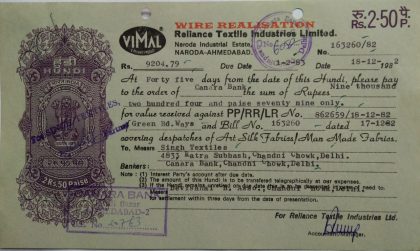 WIRE REALISATION
रु. 2·50 पै.
Rs. P.
VIMAL
Reliance Textile Industries Limited.
Naroda Industrial Estate,
NARODA-AHMEDABAD.
No. 163260/82
HUNDI
Rs. 9204.79 Due Date 1-2-83 Date 18-12-1982
At Forty five days from the date of this Hundi, please pay
to the order of Canara Bank
the sum of Rupees Nine thousand
two hundred four and paise seventy nine only.
for value received against PP/RR/LR No. 862659/18-12-82
Green Rd.Ways and Bill No. 163260 dated 17-12-82
covering despatches of Art Silk Fabrics/Man Made Fabrics.
To Messrs Singh Textiles
4833 Katra Subhash, Chandni Chowk, Delhi.
Bankers: Canara Bank, Chandni Chowk, Delhi.
Note: i) Interest Party's account after due date.
ii) The amount of this Hundi is to be transferred telegraphically at our expenses.
iii) If the Hundi remains
to settlement within three days from the date of presentation.
2 Rs. 50 PAISE
BANK
AHMEDABAD-2
For Reliance Textile Industries Ltd.
Accountant/Manager.